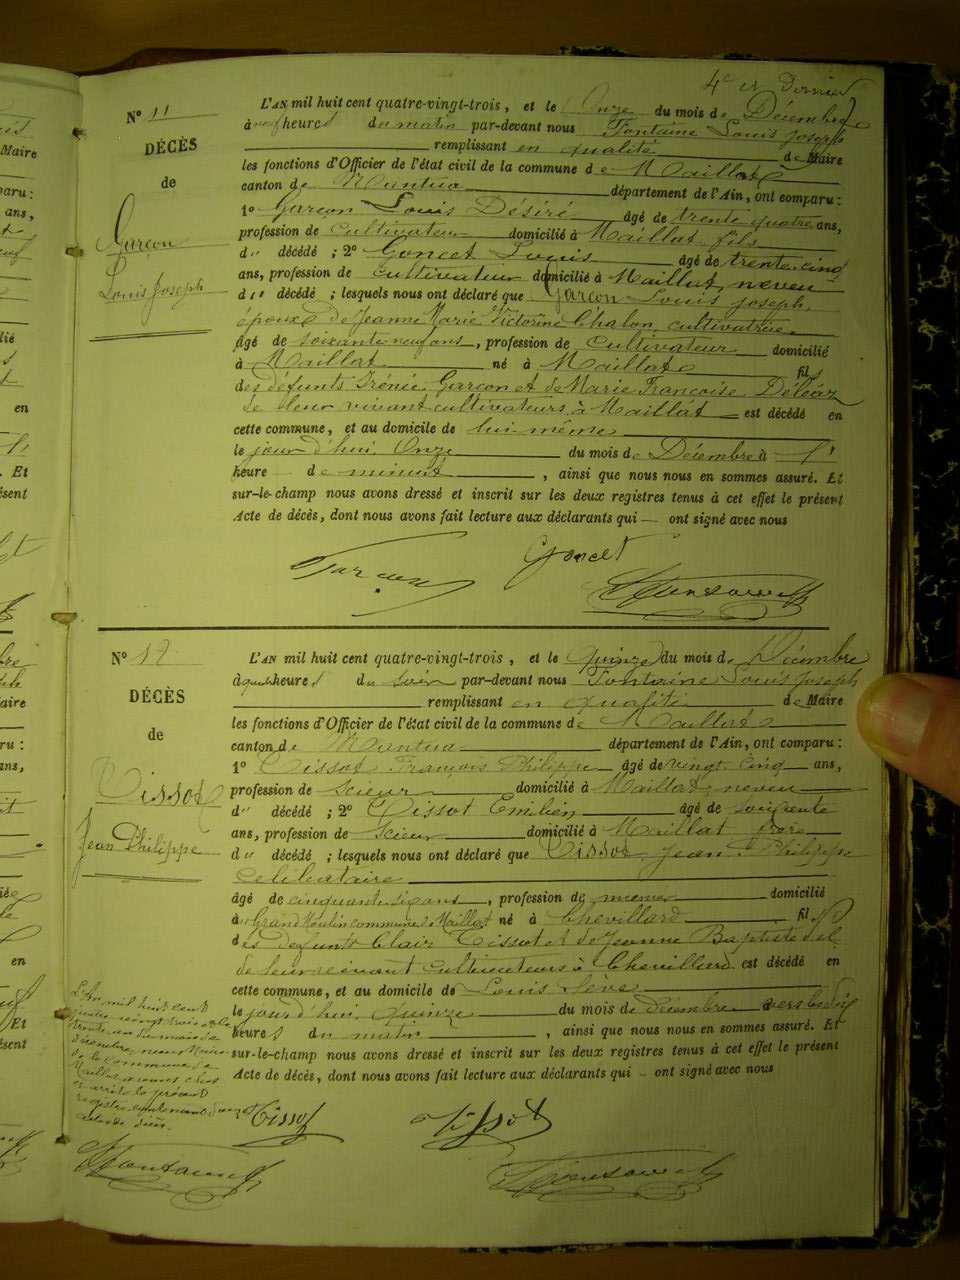 4e et dernier
N° 11
DÉCÈS
de
Garçon
Louis Joseph
L'AN mil huit cent quatre-vingt-trois, et le Onze du mois de Décembre
à neuf heures du matin par-devant nous Fontaine Louis Joseph
remplissant en qualité de Maire
les fonctions d'Officier de l'état civil de la commune de Maillat
canton de Nantua département de l'Ain, ont comparu :
1° Garçon Louis Désiré âgé de trente quatre ans,
profession de Cultivateur domicilié à Maillat, fils
du décédé ; 2° Goncet Louis âgé de trente cinq
ans, profession de cultivateur domicilié à Maillat, neveu
du décédé ; lesquels nous ont déclaré que Garçon Louis Joseph,
époux de Jeanne Marie Victorine Chalon, cultivatrice
âgé de soixante neuf ans, profession de Cultivateur domicilié
à Maillat né à Maillat fils
des défunts Irénée Garçon et de Marie Françoise Déléaz
de leur vivant cultivateurs à Maillat est décédé en
cette commune, et au domicile de lui-même
le jour d'hui Onze du mois de Décembre à 1'
heure de minuit, ainsi que nous nous en sommes assuré. Et
sur-le-champ nous avons dressé et inscrit sur les deux registres tenus à cet effet le présent
Acte de décès, dont nous avons fait lecture aux déclarants qui ont signé avec nous
Garçon
Goncet
N° 12
DÉCÈS
de
Tissot
Jean Philippe
L'AN mil huit cent quatre-vingt-trois, et le Quinze du mois de Décembre
à quatre heures du soir par-devant nous Fontaine Louis Joseph
remplissant en qualité de Maire
les fonctions d'Officier de l'état civil de la commune de Maillat
canton de Nantua département de l'Ain, ont comparu :
1° Tissot François Philippe âgé de vingt cinq ans,
profession de Scieur domicilié à Maillat, neveu
du décédé ; 2° Tissot Emilien âgé de soixante
ans, profession de Scieur domicilié à Maillat frère
du décédé ; lesquels nous ont déclaré que Tissot Jean Philippe
Célibataire
âgé de cinquante six ans, profession de domicilié
au Grand Moulin commune de Maillat né à Chevillard fils
des défunts Clair Tissot et de Jeanne Baptiste
de leur vivant cultivateurs à Chevillard est décédé en
cette commune, et au domicile de Louis Sève
le jour d'hui Quinze du mois de Décembre à vers les dix
heures du matin, ainsi que nous nous en sommes assuré. Et
sur-le-champ nous avons dressé et inscrit sur les deux registres tenus à cet effet le présent
Acte de décès, dont nous avons fait lecture aux déclarants qui ont signé avec nous
L'An mil huit cent
quatre vingt trois et le
trente un du mois de
décembre, nous Maire
de la commune de
Maillat avons clos
et arrêté le présent
registre contenant douze
actes de décès.
Tissot
Tissot
Fontaine